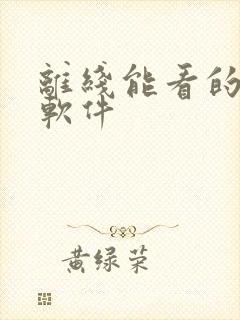 離綫能看的
軟件
黄绿荣